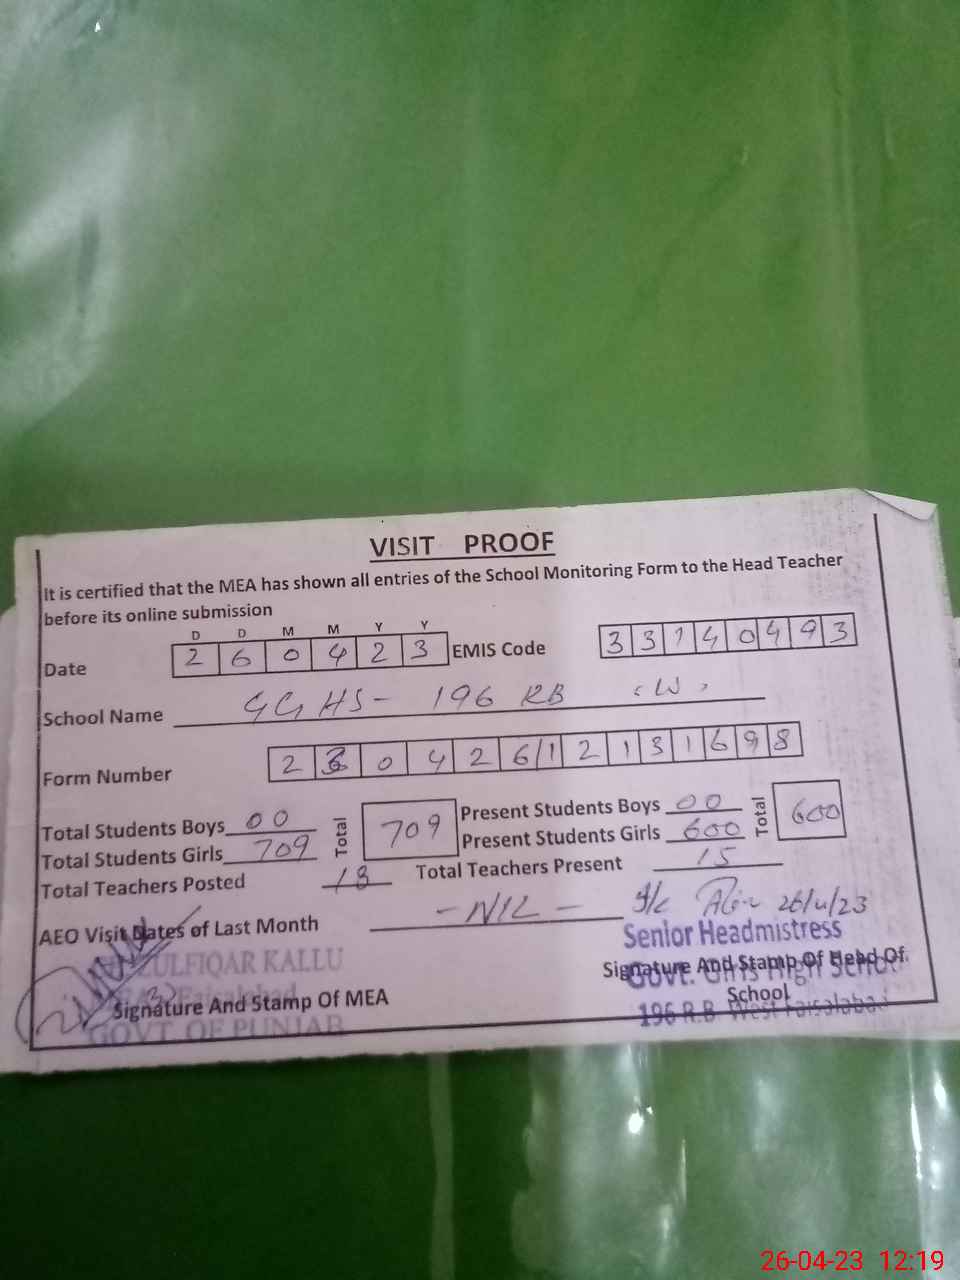 VISIT PROOF
It is certified that the MEA has shown all entries of the School Monitoring Form to the Head Teacher
before its online submission
D D M M Y Y
Date 2 6 0 4 2 3 EMIS Code 3 3 1 4 0 4 9 3
School Name GGHS - 196 RB (W)
Form Number 2 3 0 4 2 6 1 2 1 3 1 6 9 8
Total Students Boys 00 Total 709 Present Students Boys 00 Total 600
Total Students Girls 709 Present Students Girls 600
Total Teachers Posted 18 Total Teachers Present 15
AEO Visit Dates of Last Month - NIL - 26/4/23
Senior Headmistress
ZULFIQAR KALLU
Signature And Stamp Of Head Of
School
Govt. Girls High School
196 R.B West Faisalabad
Faisalabad
Signature And Stamp Of MEA
GOVT. OF PUNJAB
26-04-23 12:19